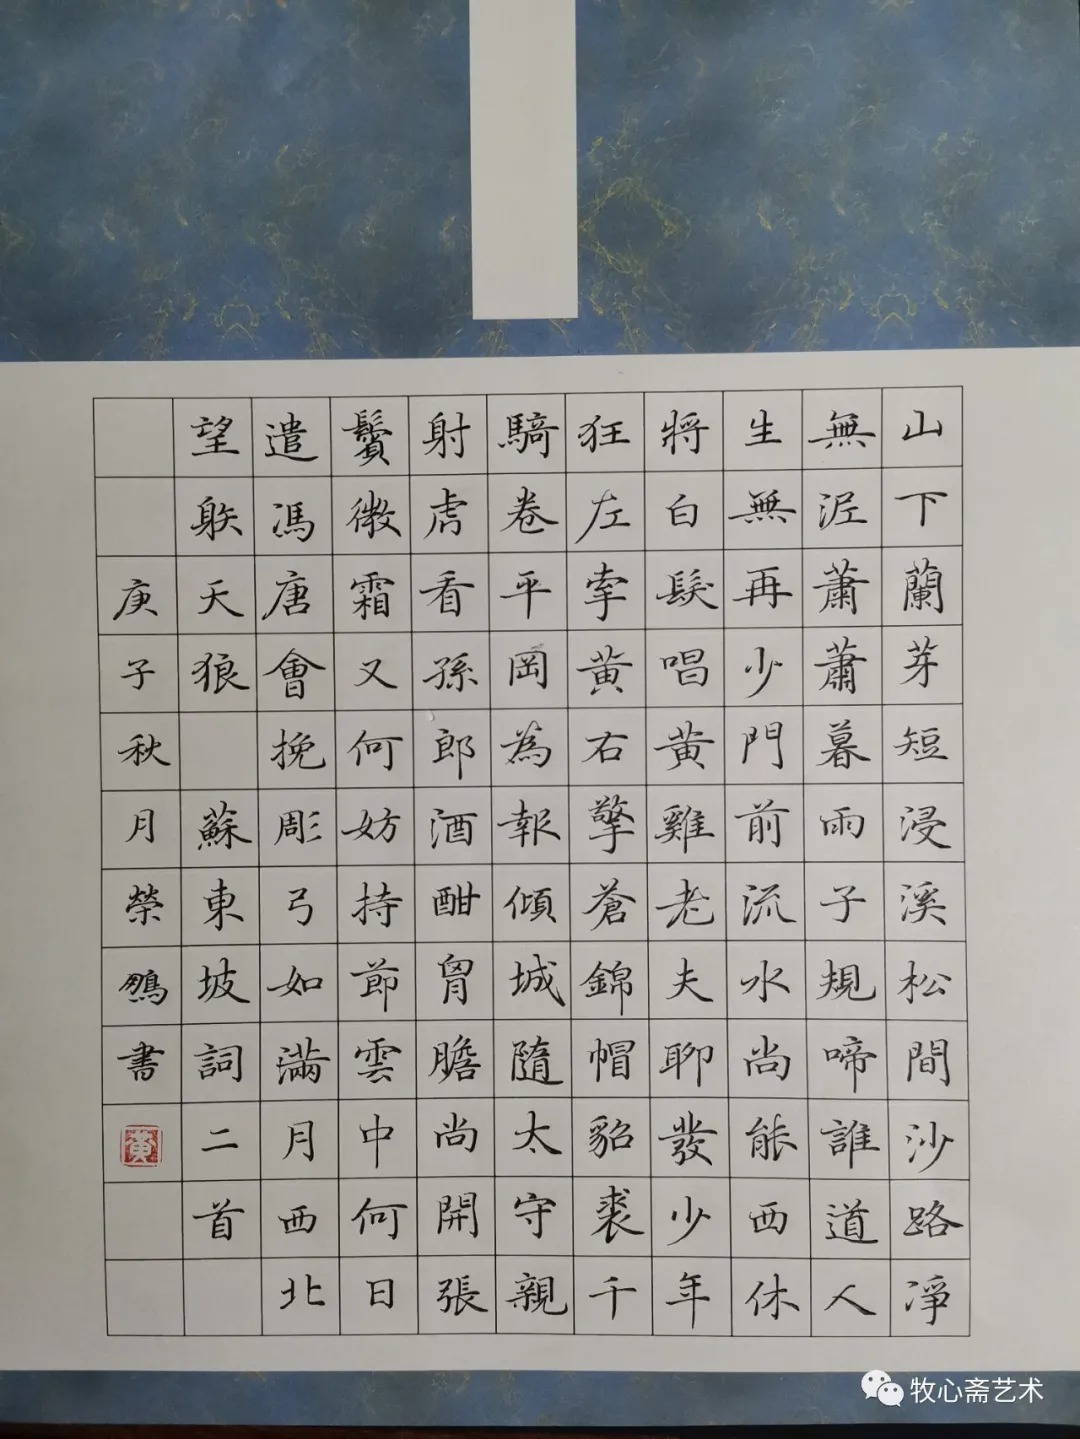 山下蘭芽短浸溪松間沙路淨
無泥蕭蕭暮雨子規啼誰道人
生無再少門前流水尚能西休
將白髮唱黃雞老夫聊發少年
狂左牽黃右擎蒼錦帽貂裘千
騎卷平岡為報傾城隨太守親
射虎看孫郎酒酣胷膽尚開張
鬢微霜又何妨持節雲中何日
遣馮唐會挽彫弓如滿月西北
望䠶天狼 蘇東坡詞二首
庚子秋月榮書
黃
牧心斋艺术